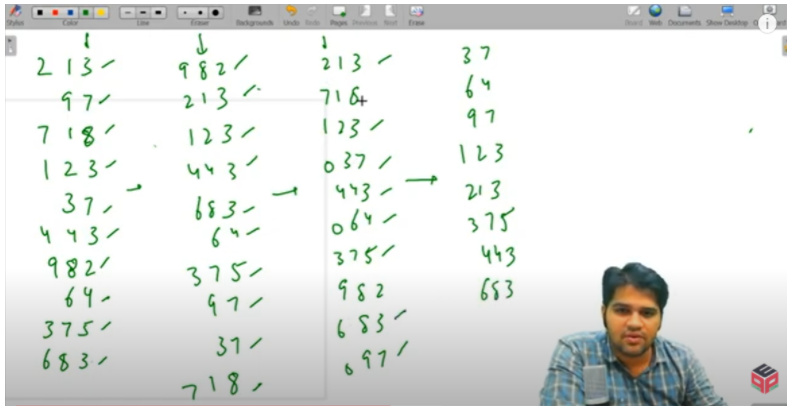 Stylus Color Line Eraser Backgrounds Undo Redo Pages Previous Next Erase Board Web Documents Show Desktop
213
97
718
123
37
443
982
64
375
683
982
213
123
443
683
64
375
97
37
718
213
718
123
037
443
064
375
982
683
097
37
64
97
123
213
375
443
683